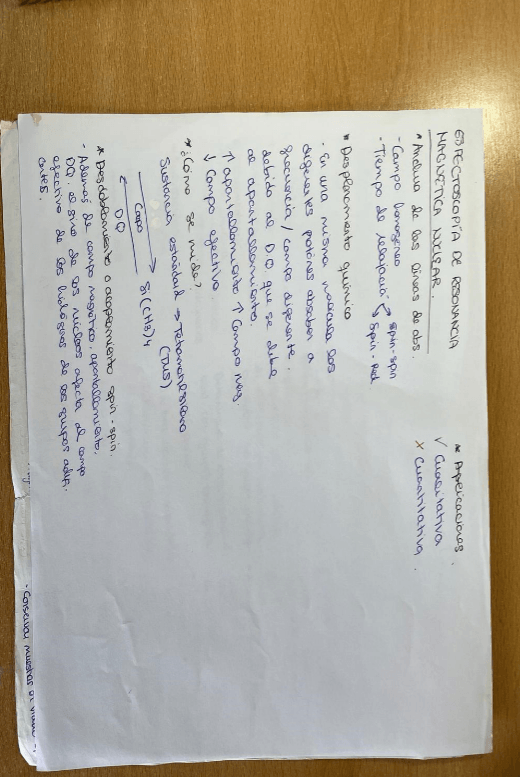 ESPECTROSCOPÍA DE RESONANCIA
MAGNÉTICA NUCLEAR.
* Anchura de las líneas de abs.
- Campo homogéneo
- Tiempo de relajación → spin-spin
↳ spin-red
* Desplazamiento químico
- En una misma molécula los
diferentes protones absorben a
frecuencia/campo diferente.
debido al D.Q que se debe
al apantallamiento.
↑ apantallamiento ↑ Campo mag.
↓ Campo efectivo
* ¿Cómo se mide?
Sustancia estándar → Tetrametilsilano
(TMS)
Campo → Si(CH3)4
← DQ
* Desdoblamiento o acoplamiento spin-spin.
- Además de campo magnético, apantallamiento,
DQ el sino de los núcleos afecta al campo
efectivo de los hidrógenos de los grupos adya.
centes.
* Aplicaciones.
✓ Cualitativa
x Cuantitativa.
- Conservar muestras de